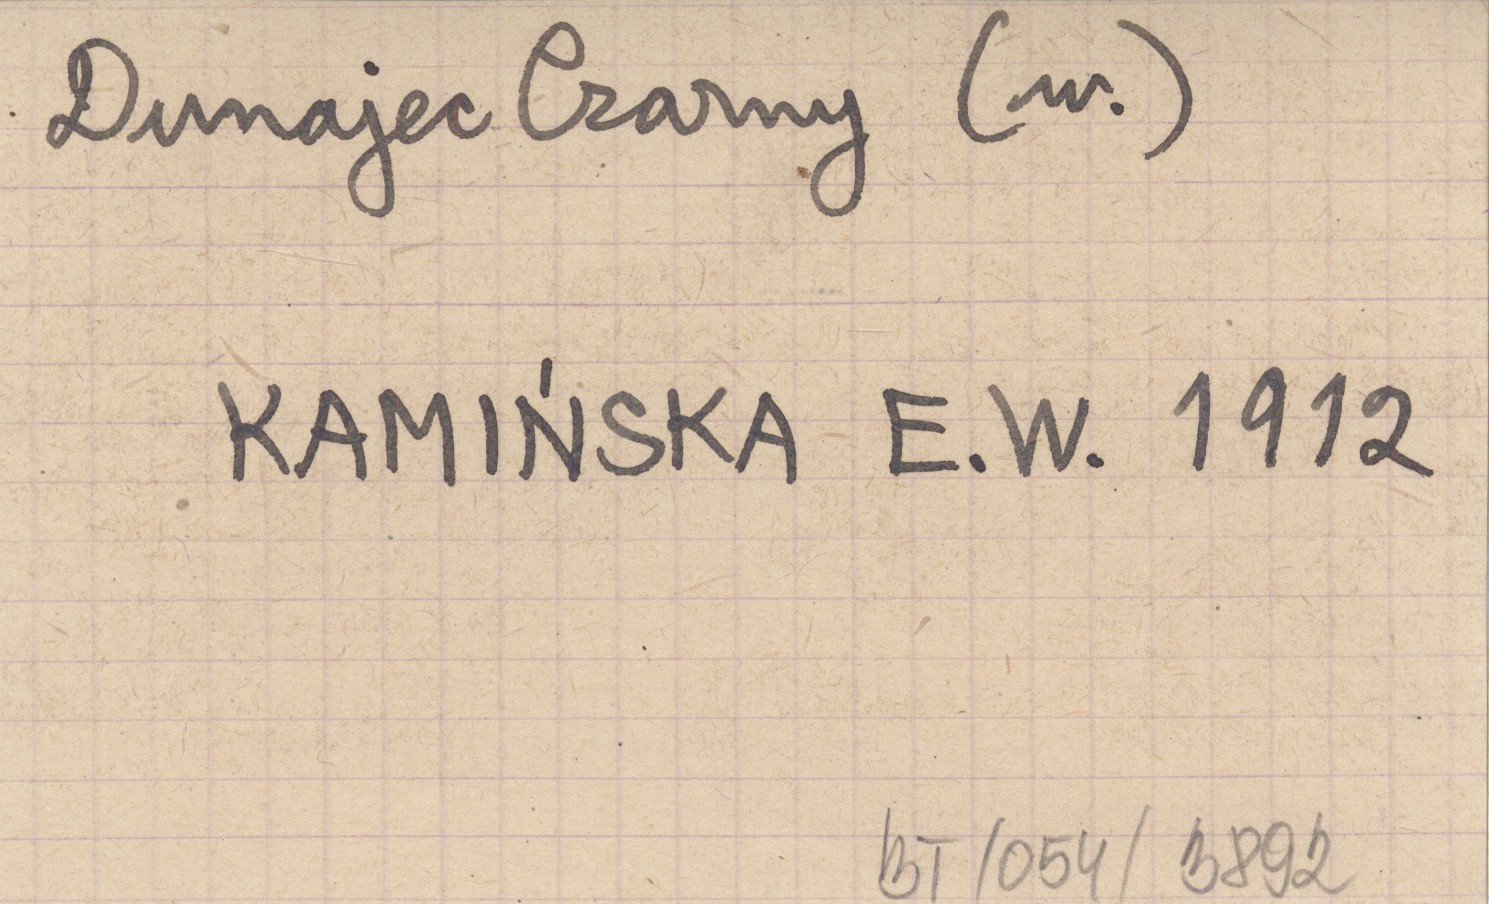 Dunajec Czarny (w.)
KAMIŃSKA E.W. 1912
BT/054/3892